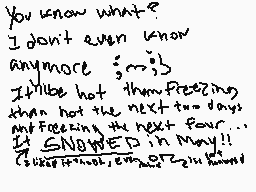 You know what?
I don't even know
anymore
It'll be hot then freezing
then hot the next two days
and freezing the next four...
It SNOWED in May!!
(I liked it though, even